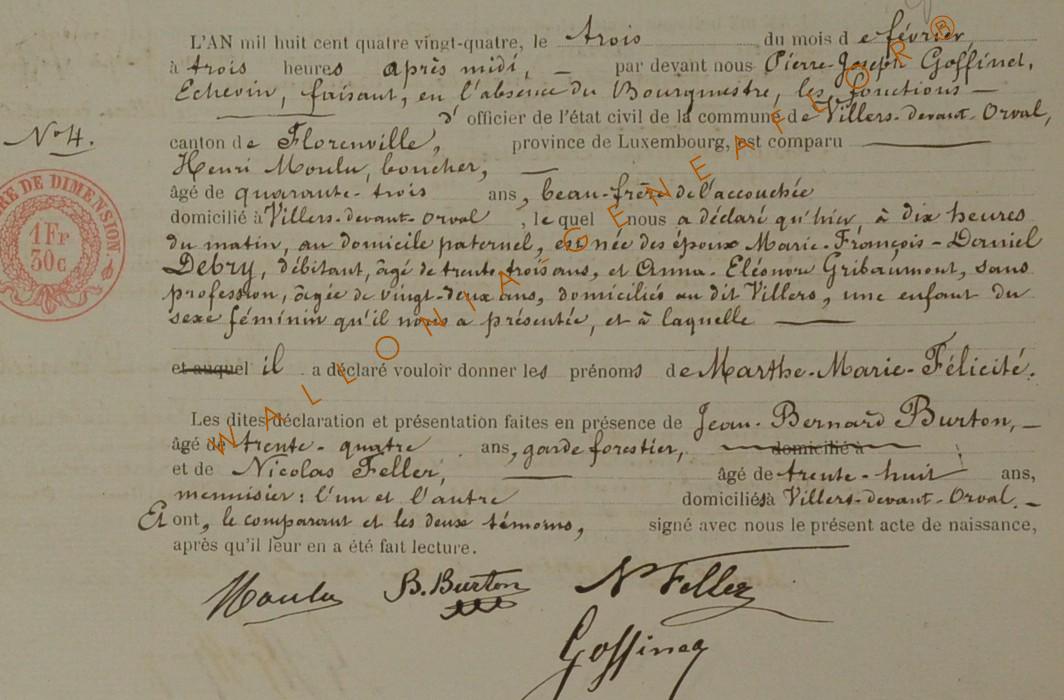 L'AN mil huit cent quatre vingt-quatre, le trois du mois de février,
à trois heures après midi, — par devant nous Pierre-Joseph Goffinet,
Echevin, faisant, en l'absence du Bourgmestre, les fonctions —
d'officier de l'état civil de la commune de Villers-devant-Orval,
N° 4.
canton de Florenville, province de Luxembourg, est comparu —
Henri Moulu, boucher, —
âgé de quarante-trois ans, beau-frère de l'accouchée
domicilié à Villers-devant-Orval, lequel nous a déclaré qu'hier, à dix heures
du matin, au domicile paternel, est née des époux Marie-François-Daniel
Debry, débitant, âgé de trente trois ans, et Anna-Eléonore Gribaumont, sans
profession, âgée de vingt-deux ans, domiciliés au dit Villers, une enfant du
sexe féminin qu'il nous a présentée, et à laquelle —
et auquel il a déclaré vouloir donner les prénoms de Marthe-Marie-Félicité.
Les dites déclaration et présentation faites en présence de Jean-Bernard Burton, —
âgé de trente-quatre ans, garde forestier, domicilié à
et de Nicolas Feller, — âgé de trente-huit ans,
menuisier: l'un et l'autre domiciliés à Villers-devant-Orval. —
Et ont, le comparant et les deux témoins, signé avec nous le présent acte de naissance,
après qu'il leur en a été fait lecture.
Moulu B. Burton N Feller
Goffinet
RE DE DIMENSION
1 Fr
30c
WALLONIA-GENEAFLOR®